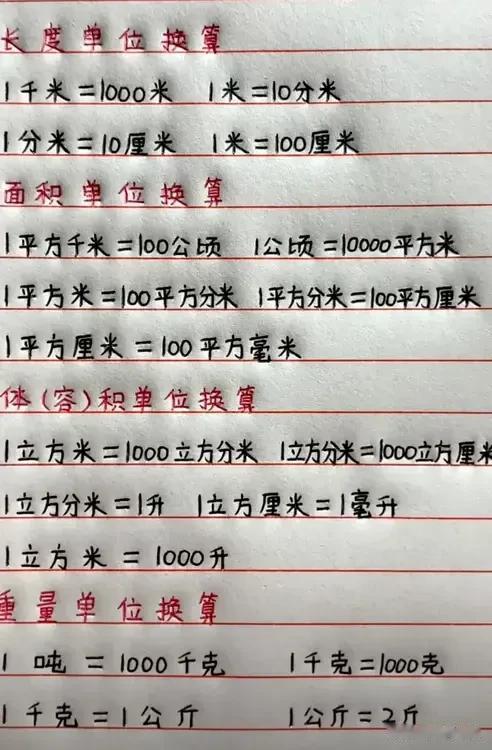 长度单位换算
1千米=1000米 1米=10分米
1分米=10厘米 1米=100厘米
面积单位换算
1平方千米=100公顷 1公顷=10000平方米
1平方米=100平方分米 1平方分米=100平方厘米
1平方厘米=100平方毫米
体(容)积单位换算
1立方米=1000立方分米 1立方分米=1000立方厘米
1立方分米=1升 1立方厘米=1毫升
1立方米=1000升
重量单位换算
1吨=1000千克 1千克=1000克
1千克=1公斤 1公斤=2斤